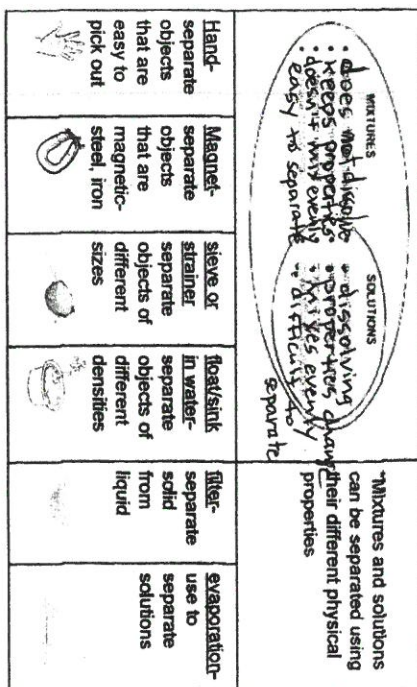 MIXTURES
• does not dissolve
• keeps properties
• doesn't mix evenly
• easy to separate
SOLUTIONS
• dissolving
• properties change
• mixes evenly
• difficult to
separate
*Mixtures and solutions
can be separated using
their different physical
properties
Hand-
separate
objects
that are
easy to
pick out
Magnet-
separate
objects
that are
magnetic-
steel, iron
sieve or
strainer
separate
objects of
different
sizes
float/sink
in water-
separate
objects of
different
densities
filter-
separate
solid
from
liquid
evaporation-
use to
separate
solutions